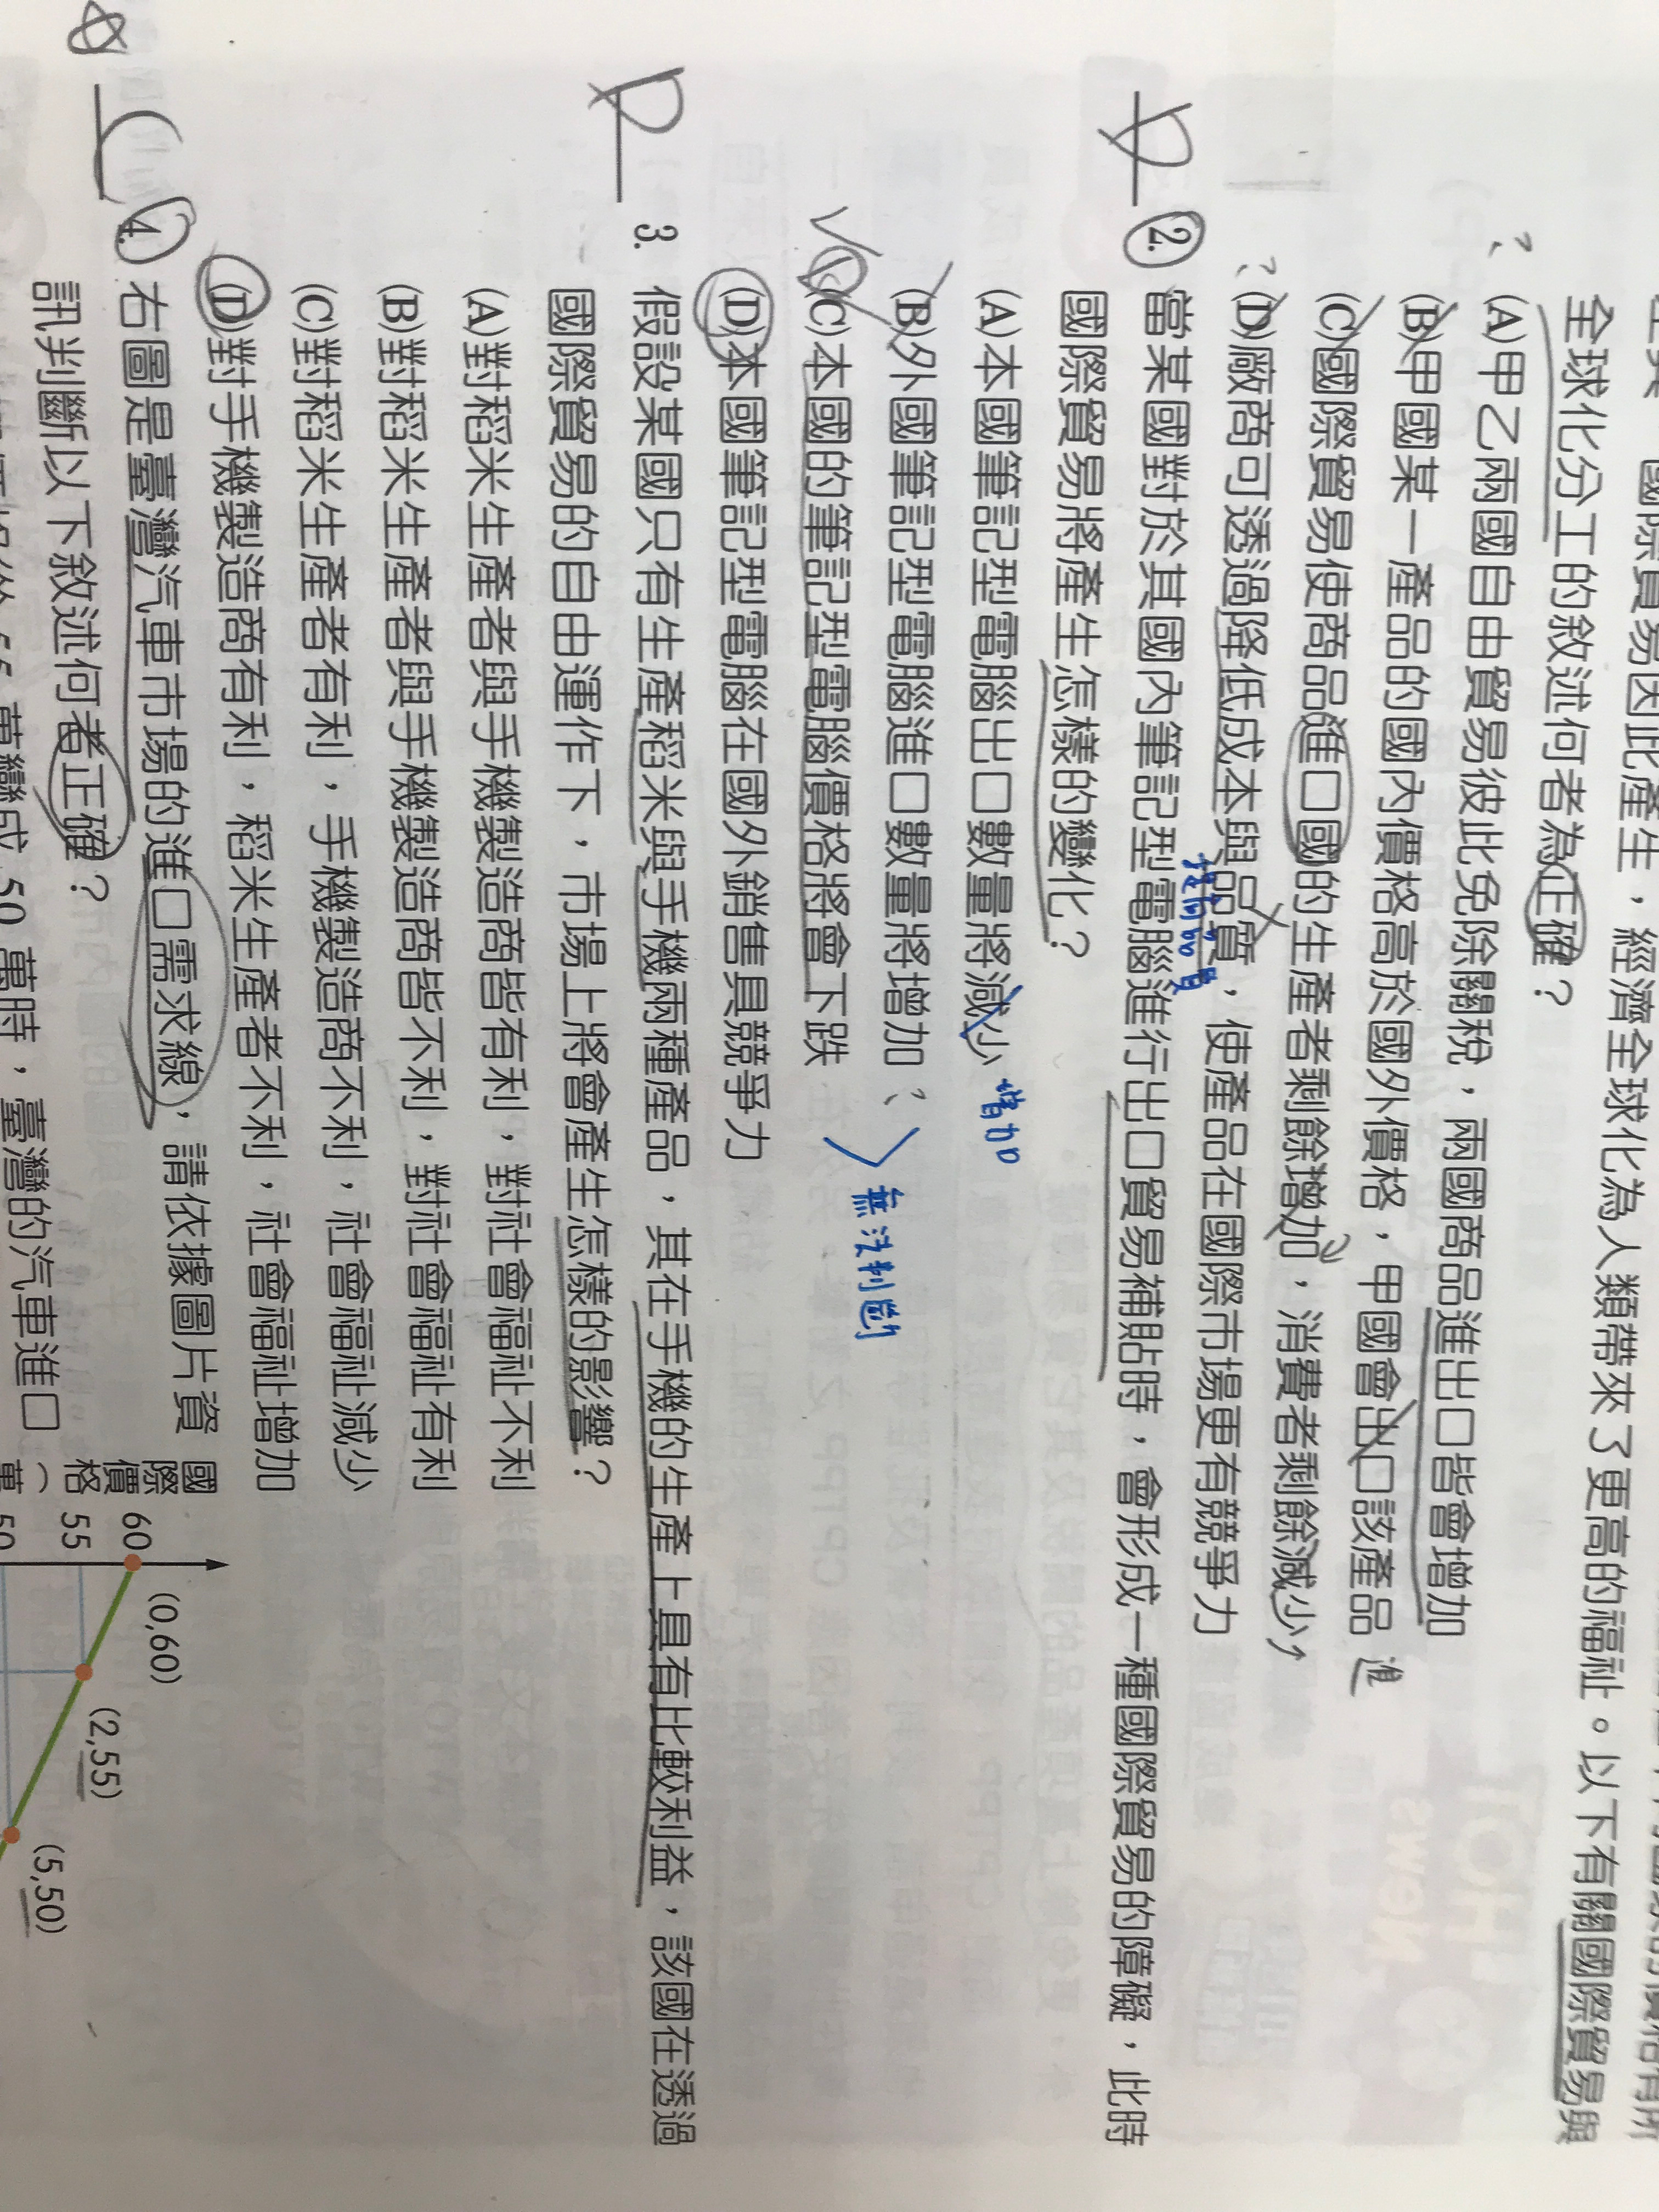 國際貿易因此產生，經濟全球化為人類帶來了更高的福祉。以下有關國際貿易與
全球化分工的敘述何者為正確？
(A)甲乙兩國自由貿易彼此免除關稅，兩國商品進出口皆會增加
(B)甲國某一產品的國內價格高於國外價格，甲國會出口該產品 進
(C)國際貿易使商品進口國的生產者剩餘增加，消費者剩餘減少
(D)廠商可透過降低成本與品質，使產品在國際市場更有競爭力
提高品質
D 2. 當某國對於其國內筆記型電腦進行出口貿易補貼時，會形成一種國際貿易的障礙，此時
國際貿易將產生怎樣的變化？
(A)本國筆記型電腦出口數量將減少 增加
(B)外國筆記型電腦進口數量將增加？
無法判斷
(C)本國的筆記型電腦價格將會下跌
(D)本國筆記型電腦在國外銷售具競爭力
D 3. 假設某國只有生產稻米與手機兩種產品，其在手機的生產上具有比較利益，該國在透過
國際貿易的自由運作下，市場上將會產生怎樣的影響？
(A)對稻米生產者與手機製造商皆有利，對社會福祉不利
(B)對稻米生產者與手機製造商皆不利，對社會福祉有利
(C)對稻米生產者有利，手機製造商不利，社會福祉減少
(D)對手機製造商有利，稻米生產者不利，社會福祉增加
C 4. 右圖是臺灣汽車市場的進口需求線，請依據圖片資
訊判斷以下敘述何者正確？
55 萬變成 50 萬時，臺灣的汽車進口
國際價格（萬
60
55
50
(0,60)
(2,55)
(5,50)